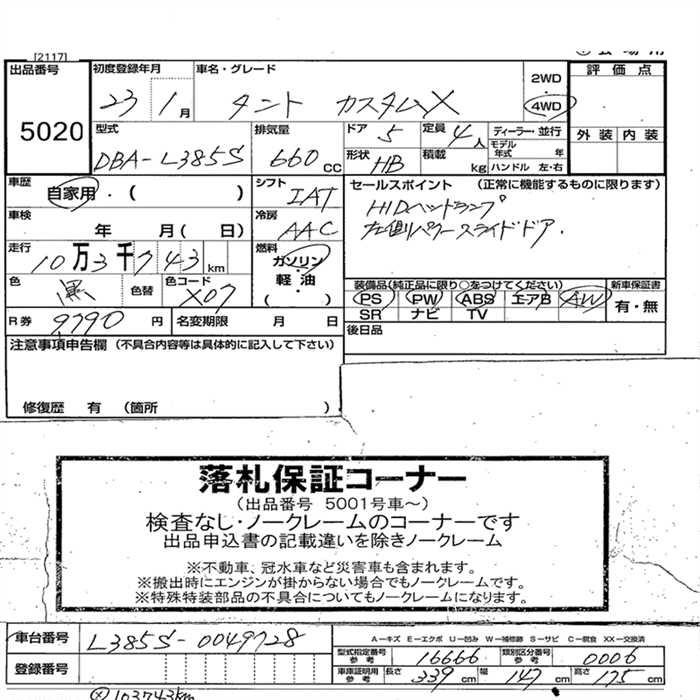 [2117]
出品番号 初度登録年月 車名・グレード 2WD 評価点
5020 23 1月 タント カスタムX 4WD
型式 排気量 ドア 5 定員 4人 ディーラー・並行 外装 内装
DBA-L385S 660cc 形状 HB 積載 kg モデル年式 年 ハンドル 左・右
車歴 自家用・( ) シフト IAT セールスポイント (正常に機能するものに限ります)
車検 年 月( 日) 冷房 AAC HIDヘッドランプ
左側パワースライドドア.
走行 10万3千743km 燃料 ガソリン・軽油・( )
色 黒 色替 色コード X07 装備品(純正品に限り○をつけてください) 新車保証書
PS PW ABS エアB AW 有・無
SR ナビ TV
R券 9790円 名変期限 月 日 後日品
注意事項申告欄 (不具合内容等は具体的に記入して下さい)
修復歴 有 (箇所 )
落札保証コーナー
(出品番号 5001号車~)
検査なし・ノークレームのコーナーです
出品申込書の記載違いを除きノークレーム
※不動車、冠水車など災害車も含まれます。
※搬出時にエンジンが掛からない場合でもノークレームです。
※特殊特装部品の不具合についてもノークレームになります。
車台番号 L385S-0049728 A-キズ E-エクボ U-凹み W-補修跡 S-サビ C-腐食 XX-交換済
型式指定番号 参考 16666 類別区分番号 参考 0006
登録番号 車庫証明用 参考 長さ 339cm 幅 147cm 高さ 175cm
103743km